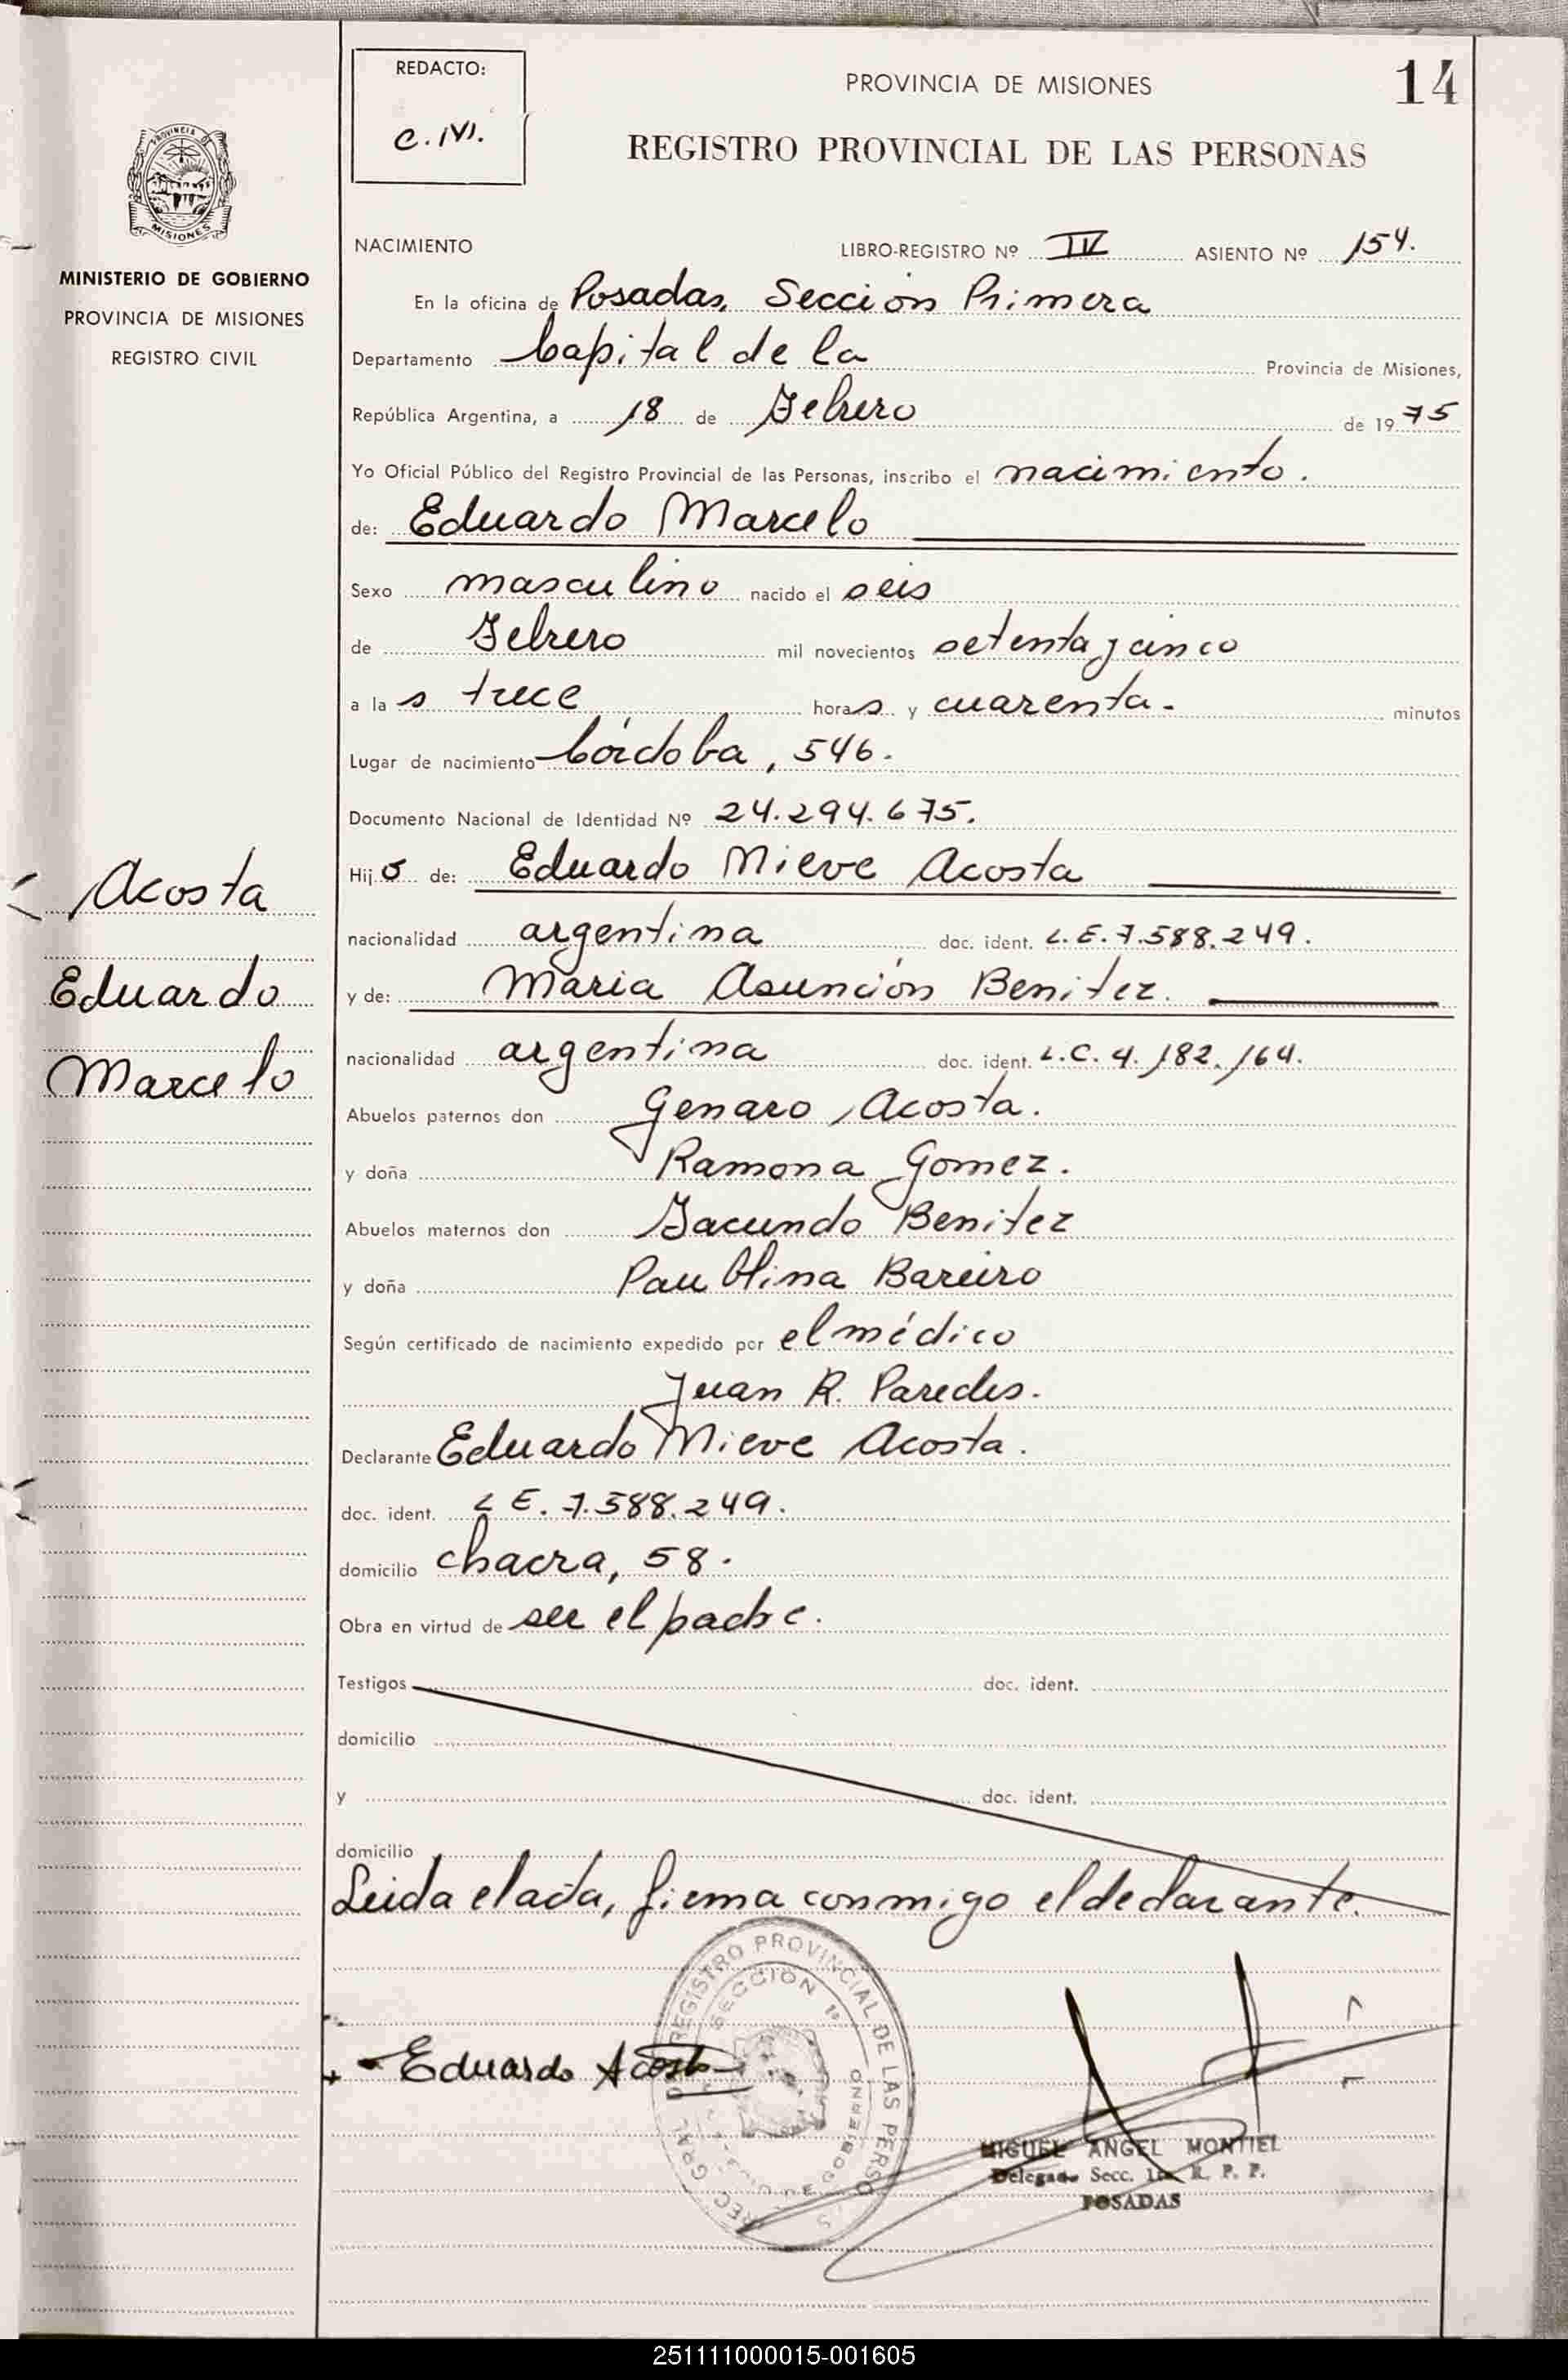 REDACTO:
C.M.
PROVINCIA DE MISIONES
14
REGISTRO PROVINCIAL DE LAS PERSONAS
PROVINCIA DE
MISIONES
MINISTERIO DE GOBIERNO
PROVINCIA DE MISIONES
REGISTRO CIVIL
NACIMIENTO LIBRO-REGISTRO Nº IV ASIENTO Nº 154.
En la oficina de Posadas, Sección Primera
Departamento Capital de la Provincia de Misiones,
República Argentina, a 18 de Febrero de 1975
Yo Oficial Público del Registro Provincial de las Personas, inscribo el nacimiento.
de: Eduardo Marcelo
Sexo masculino nacido el seis
de Febrero mil novecientos setenta y cinco
a la s trece horas y cuarenta. minutos
Lugar de nacimiento Córdoba, 546.
Documento Nacional de Identidad Nº 24.294.675.
Hijo de: Eduardo Nieve Acosta
nacionalidad argentina doc. ident. L.E. 7.588.249.
y de: Maria Asunción Benitez.
nacionalidad argentina doc. ident. L.C. 4.182.164.
Abuelos paternos don Genaro Acosta.
y doña Ramona Gomez.
Abuelos maternos don Facundo Benitez
y doña Bareiro
Según certificado de nacimiento expedido por el médico
Juan R. Paredes.
Declarante Eduardo Nieve Acosta.
doc. ident. L E. 7.588.249.
domicilio chacra, 58.
Obra en virtud de ser el padre.
Testigos doc. ident.
domicilio
y doc. ident.
domicilio
Leida el acta, firma conmigo el declarante.
Acosta
Eduardo
Marcelo
Eduardo Acosta
REGISTRO PROVINCIAL DE LAS PERSO
SECCION 1ª
DE GOBIERNO
MIGUEL ANGEL MONTIEL
Delegado Secc. 1ra. R. P. P.
POSADAS
251111000015-001605